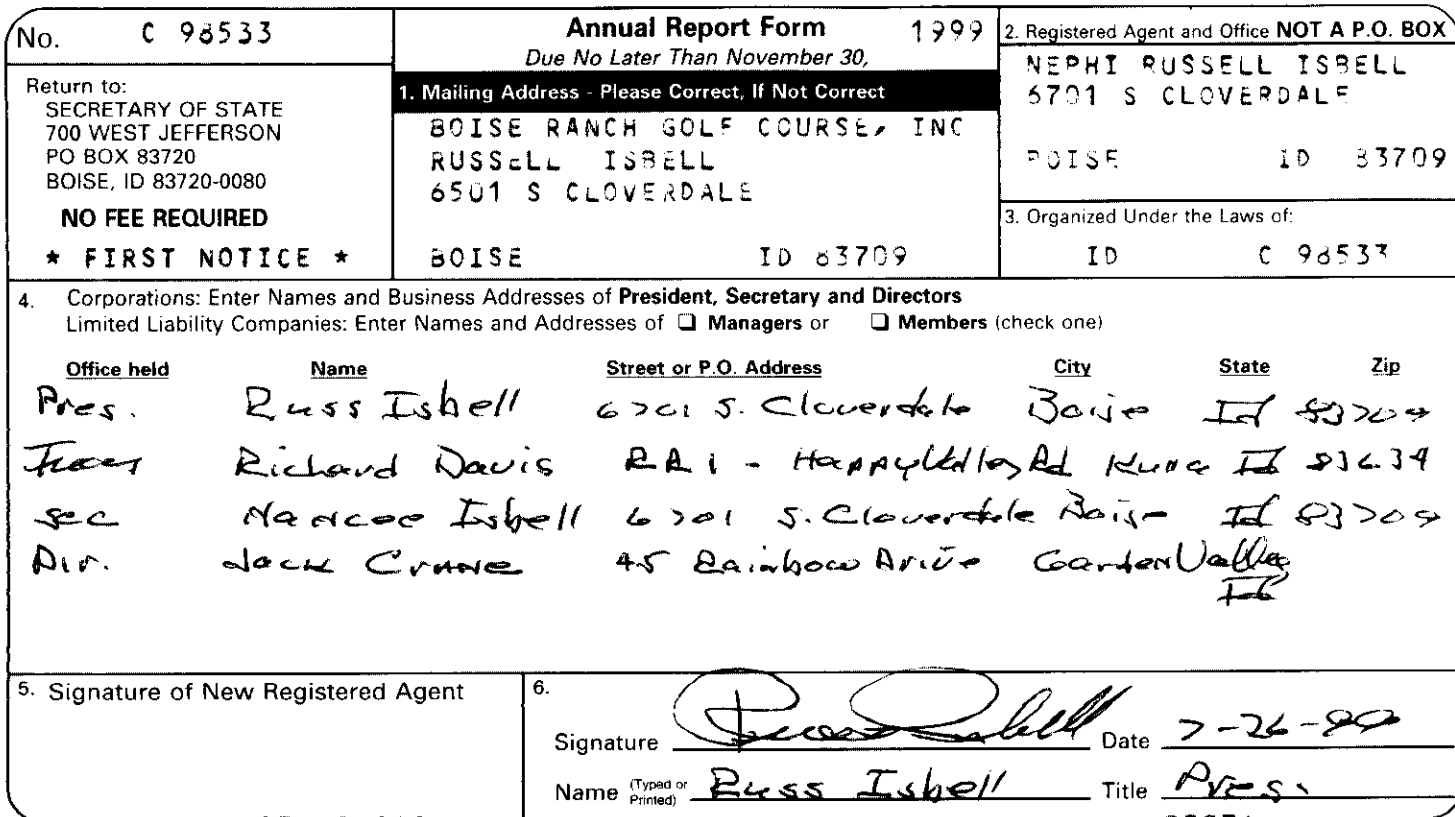 No. C 98533
Annual Report Form 1999
Due No Later Than November 30,
Return to:
SECRETARY OF STATE
700 WEST JEFFERSON
PO BOX 83720
BOISE, ID 83720-0080
NO FEE REQUIRED
* FIRST NOTICE *
1. Mailing Address - Please Correct, If Not Correct
BOISE RANCH GOLF COURSE, INC
RUSSELL ISBELL
6501 S CLOVERDALE
BOISE ID 83709
2. Registered Agent and Office NOT A P.O. BOX
NEPHI RUSSELL ISBELL
6701 S CLOVERDALE
BOISE ID 83709
3. Organized Under the Laws of:
ID C 98533
4. Corporations: Enter Names and Business Addresses of President, Secretary and Directors
Limited Liability Companies: Enter Names and Addresses of ❑ Managers or ❑ Members (check one)
Office held Name Street or P.O. Address City State Zip
Pres. Russ Isbell 6701 S. Cloverdale Boise Id 83709
Treas Richard Davis RR 1 - Happy Valley Rd Kuna Id 83634
Sec Isbell 6701 S. Cloverdale Boise Id 83709
Dir. Jack Crane 45 Rainbow Drive Garden Valley
Id
5. Signature of New Registered Agent
6.
Signature Russ Isbell Date 7-26-99
Name (Typed or Printed) Russ Isbell Title Pres.